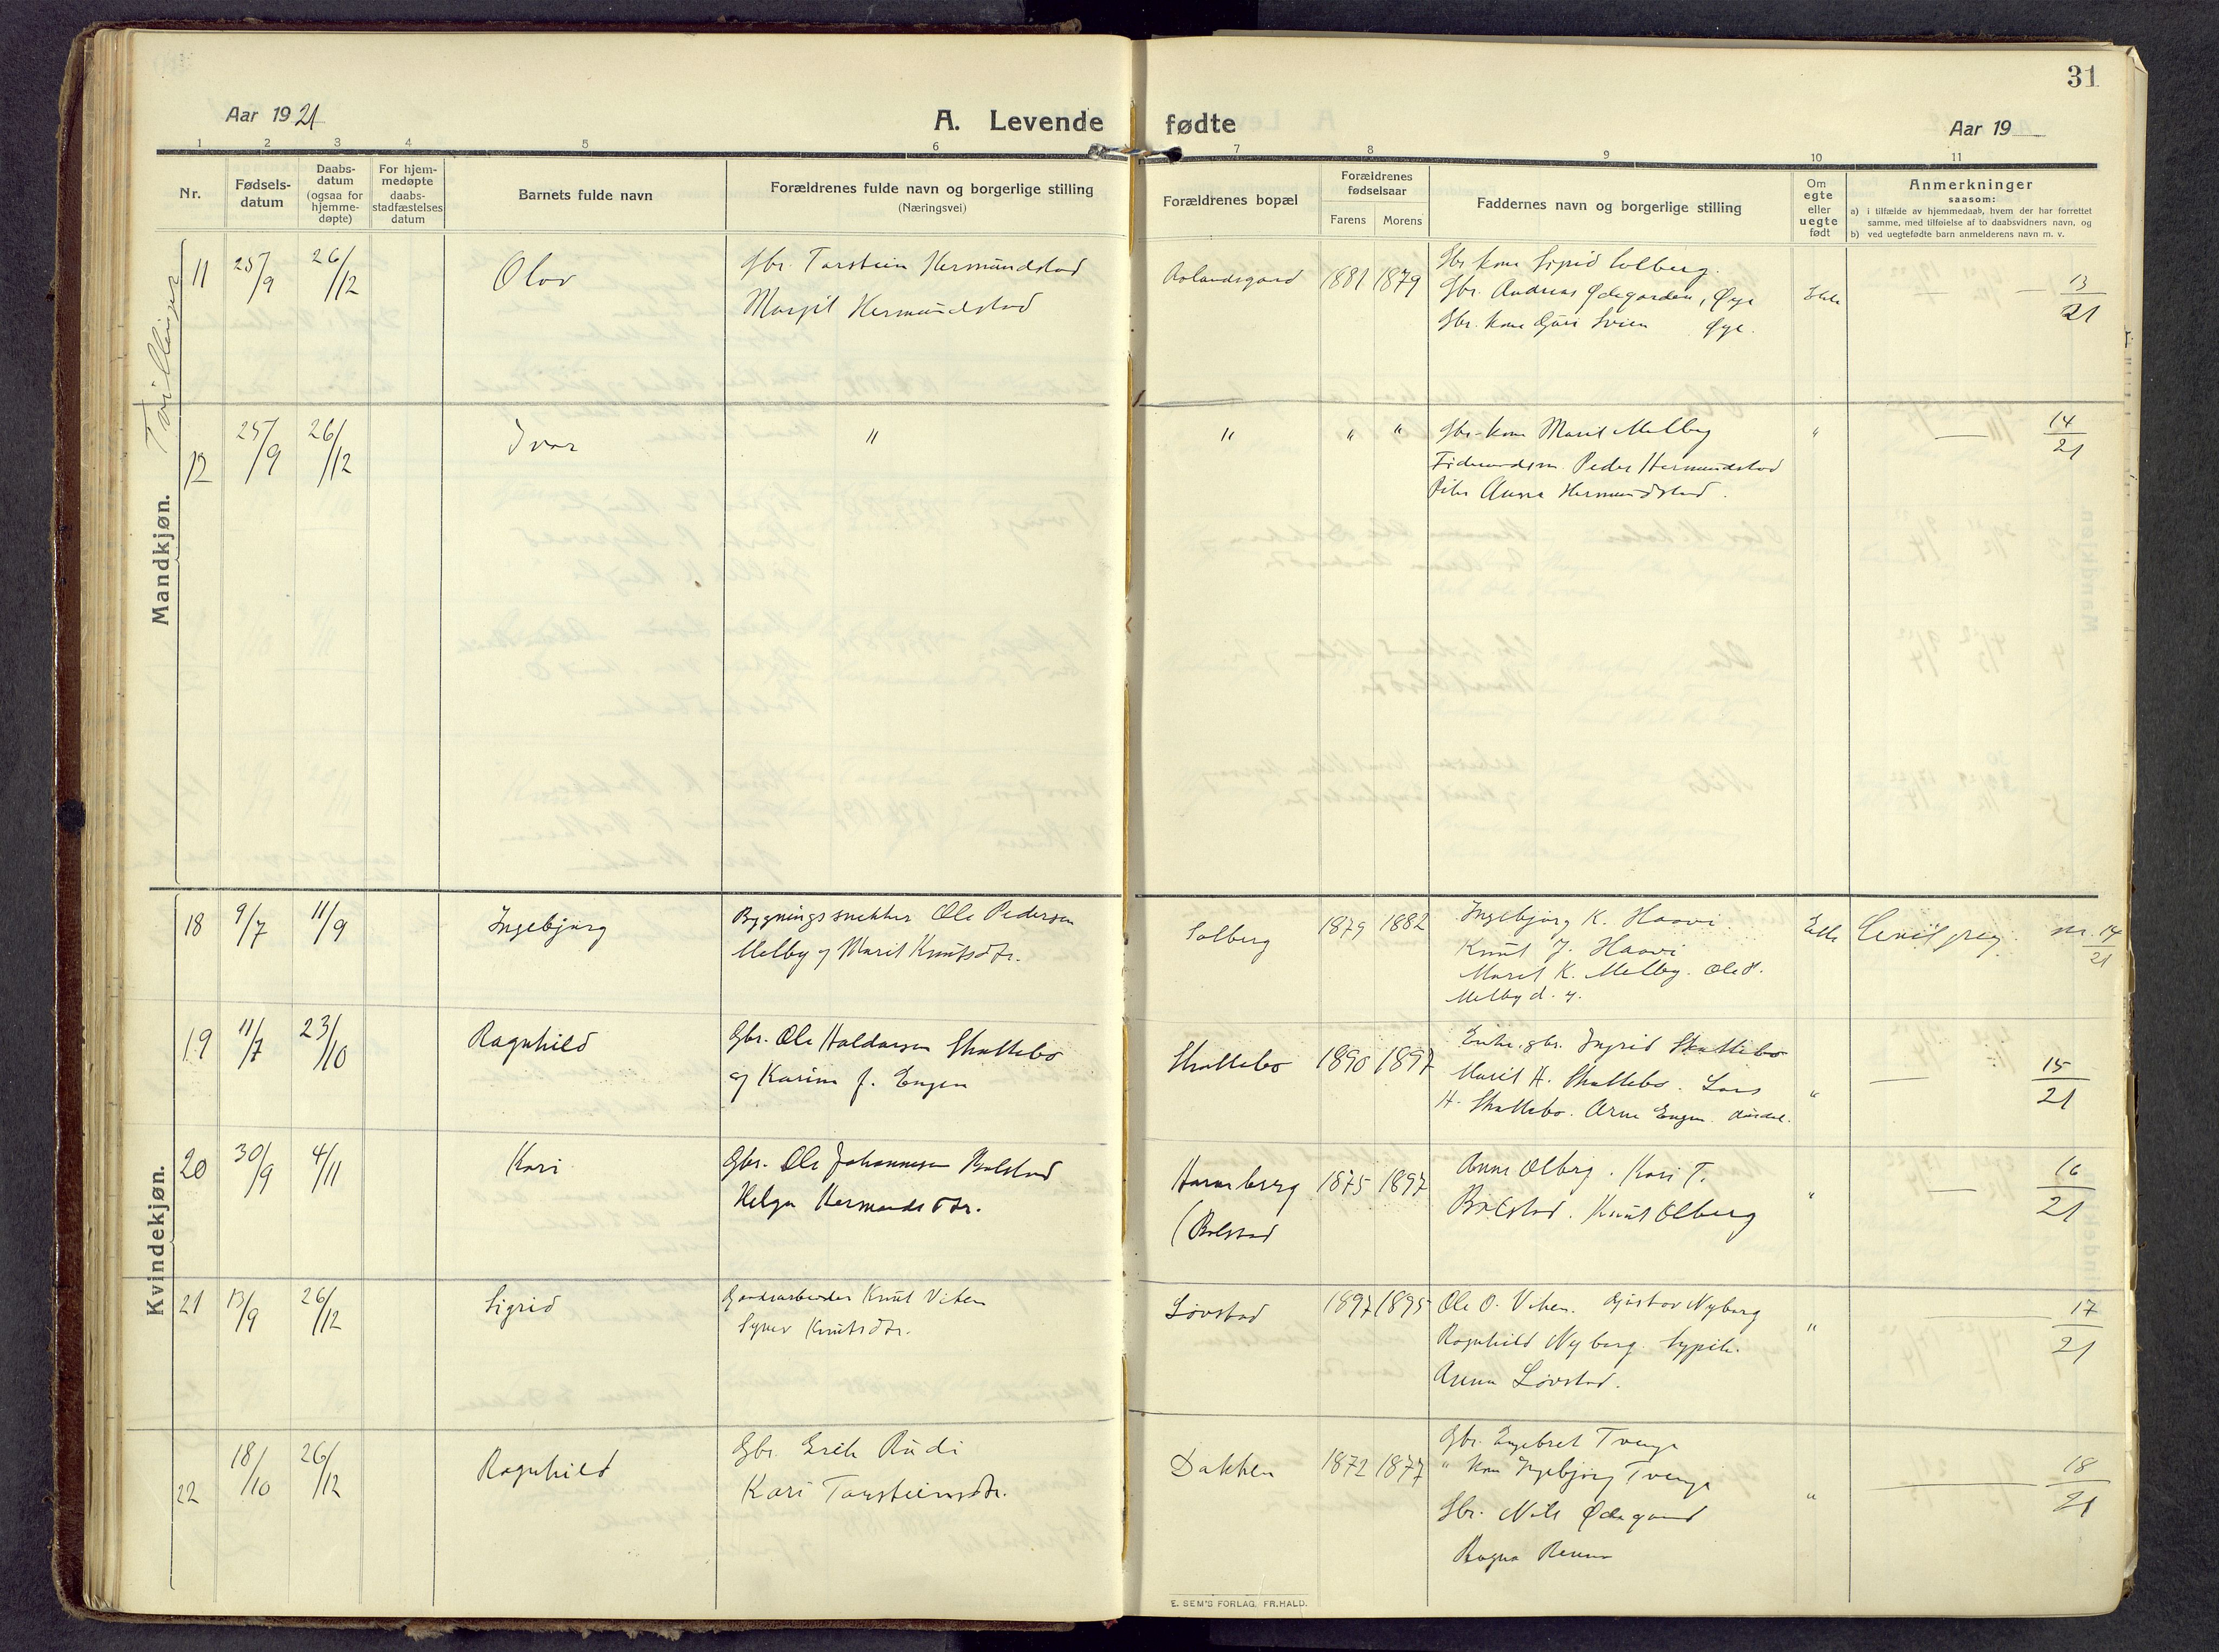 31
Aar 1921
A. Levende fødte
Aar 19
1 2 3 4 5 6 7 8 9 10 11
Nr.
Fødsels-
datum
Daabs-
datum
(ogsaa for
hjemme-
døpte)
For hjem-
medøpte
daabs-
stadfæstelses
datum
Barnets fulde navn
Forældrenes fulde navn og borgerlige stilling
(Næringsvei)
Forældrenes bopæl
Forældrenes
fødselsaar
Farens Morens
Faddernes navn og borgerlige stilling
Om
egte
eller
uegte
født
Anmerkninger
saasom:
a) i tilfælde av hjemmedaab, hvem der har forrettet
samme, med tilføielse af to daabsvidners navn, og
b) ved uegtefødte barn anmelderens navn m. v.
Mandkjøn.
Tvillinger
11 25/9 26/12 Olav Gbr. Torstein Hermundstad
Margit Hermundstad
1881 1879
Gbr. kone Sigrid Colberg.
Gbr. Andreas Ødegarden, Øye
Gbr. kone Guri Svien Øye.
13/21
12 25/9 26/12 Ivar "
" " "
Gbr-kone Marit Melby
Peder Hermundstad
Anna Hermundstad.
" — 14/21
Kvindekjøn.
18 9/7 11/9 Ingebjørg Bygningssnekker Ole Pedersen
Melby og Marit Knutsdtr.
Solberg 1879 1882
Ingebjørg K. Haavi
Knut J. Haavi
Marit K. Melby. Ole P.
Melby d. y.
Egte nr. 14/21
19 11/7 23/10 Ragnhild Gbr. Ole Haldorsen Skattebo
og Karine f. Engen
Skattebo 1890 1897
Enke. gbr. Ingrid Skattebo
Marit H. Skattebo. Lars
H. Skattebo. Arne Engen.
" — 15/21
20 30/9 4/11 Kari Gbr. Ole Johannesen Bolstad
Helga Hermundsdtr.
(Bolstad
1875 1897
Anne Olberg. Kari T.
Bolstad. Knut Olberg
" — 16/21
21 13/9 26/12 Sigrid Gaardsarbeider Knut Viken
Knutsdtr.
Løvstad 1897 1895
Ole O. Viken. Gustav Nyberg
Ragnhild Nyberg.
Anna Løvstad.
" — 17/21
22 18/10 26/12 Ragnhild Gbr. Erik Rudi
Kari Torsteinsdtr.
Dokken 1872 1877
Gbr. Engebret Tvenge
" kone Ingebjørg Tvenge
Gbr. Nils Ødegaard
Ragna
" — 18/21
E. SEM'S FORLAG, FR.HALD.